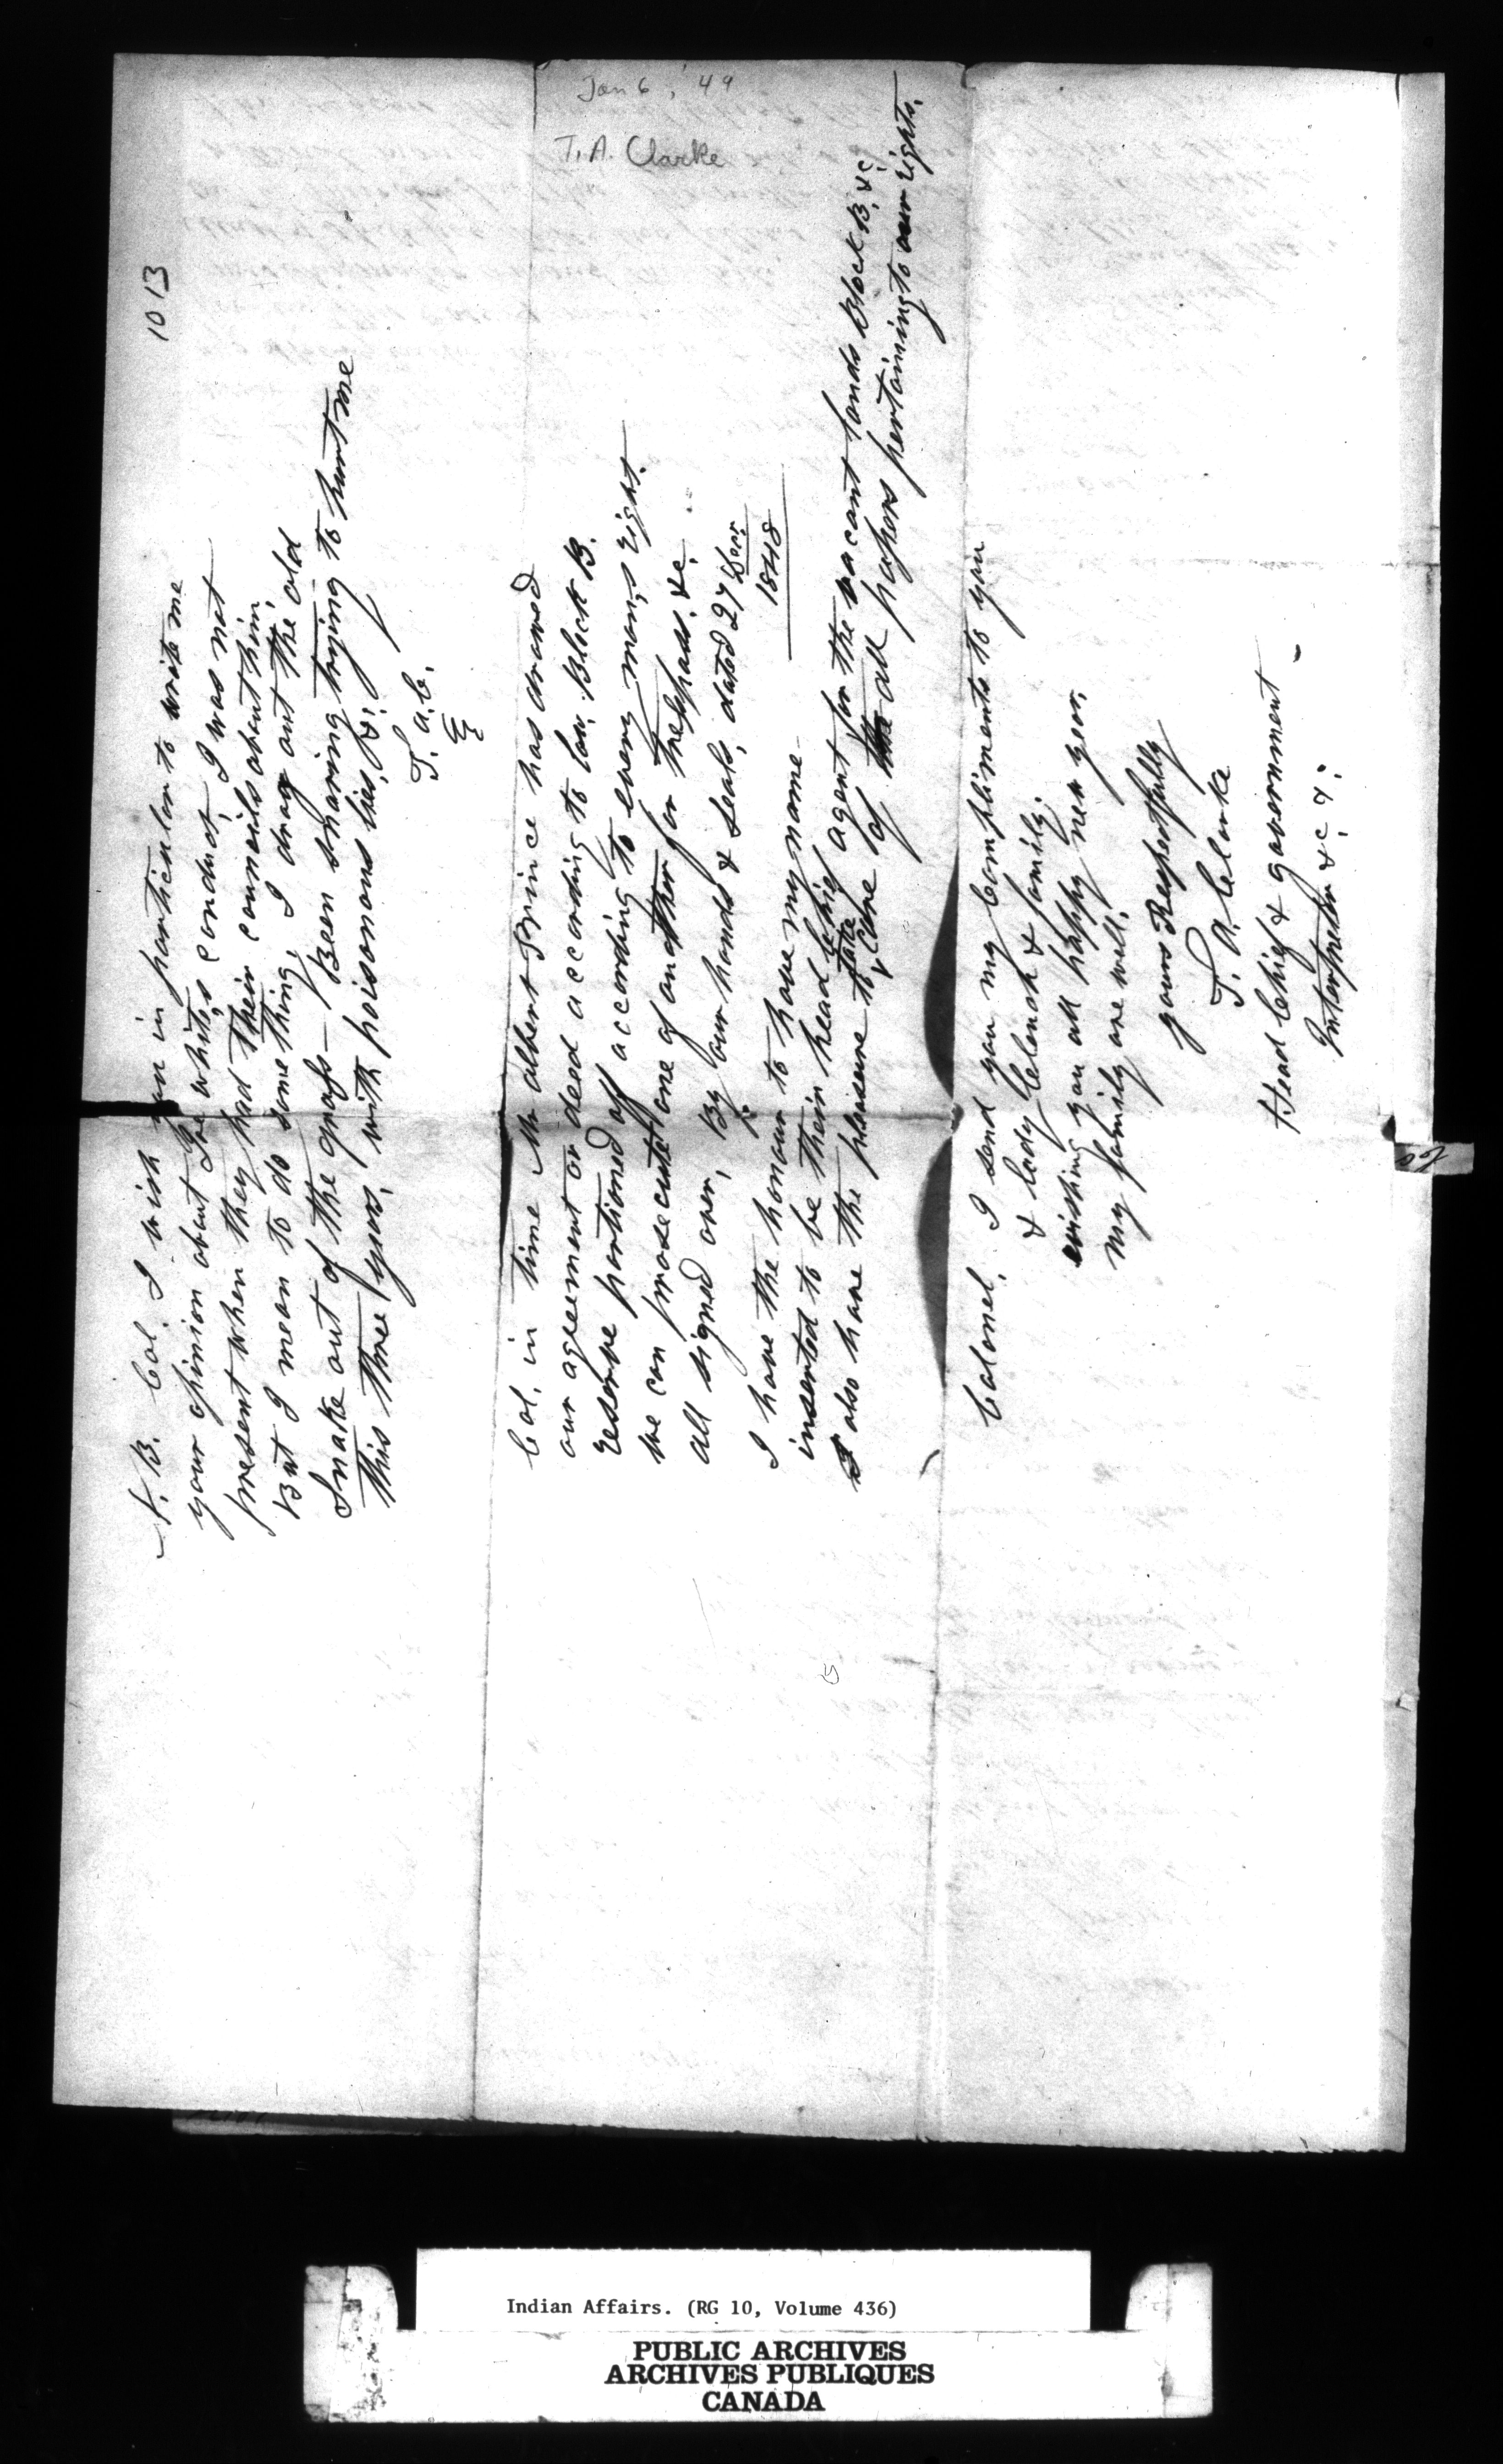 Jan 6, '49
T. A. Clarke
1013
N. B. Col. I wish you in particular to write me
your opinion about Joe white,s conduct, I was not
present when they had their councils about him,
But I mean to do something, I drag out the old
Snake out of the grass — Been snaring trying to hunt me
this three years, with poisonous lies, &c;
T. a. C.
Col. in time Mr albert Prince has drawed
our agreement or deed according to law. Block B.
reserve portioned off according to every man,s right.
we can prosecute one of another for trespass. &c.
all signed over, By our hands & seals, dated 27 Decr.
1848
I have the honour to have my name
inserted to be their head chief agent for the vacant lands Block B. &c;
I also have the pleasure to take & care of the all papers pertaining to our rights.
Colonel. I send you my Compliments to you
& lady Clench & family.
wishing you all happy new year.
my family are well.
yours Respectfully
T. A. Clarke
Head Chief & government
Interpreter &c &;
Indian Affairs. (RG 10, Volume 436)
PUBLIC ARCHIVES
ARCHIVES PUBLIQUES
CANADA